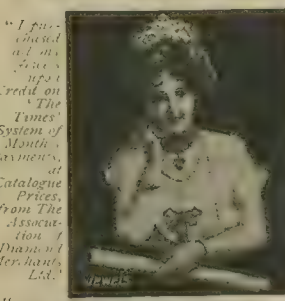 "I pur-
chased
all my
Jewels
upon
Credit on
'The
Times'
System of
Monthly
Payments,
at
Catalogue
Prices,
from The
Associa-
tion of
Diamond
Merchants,
Ltd."